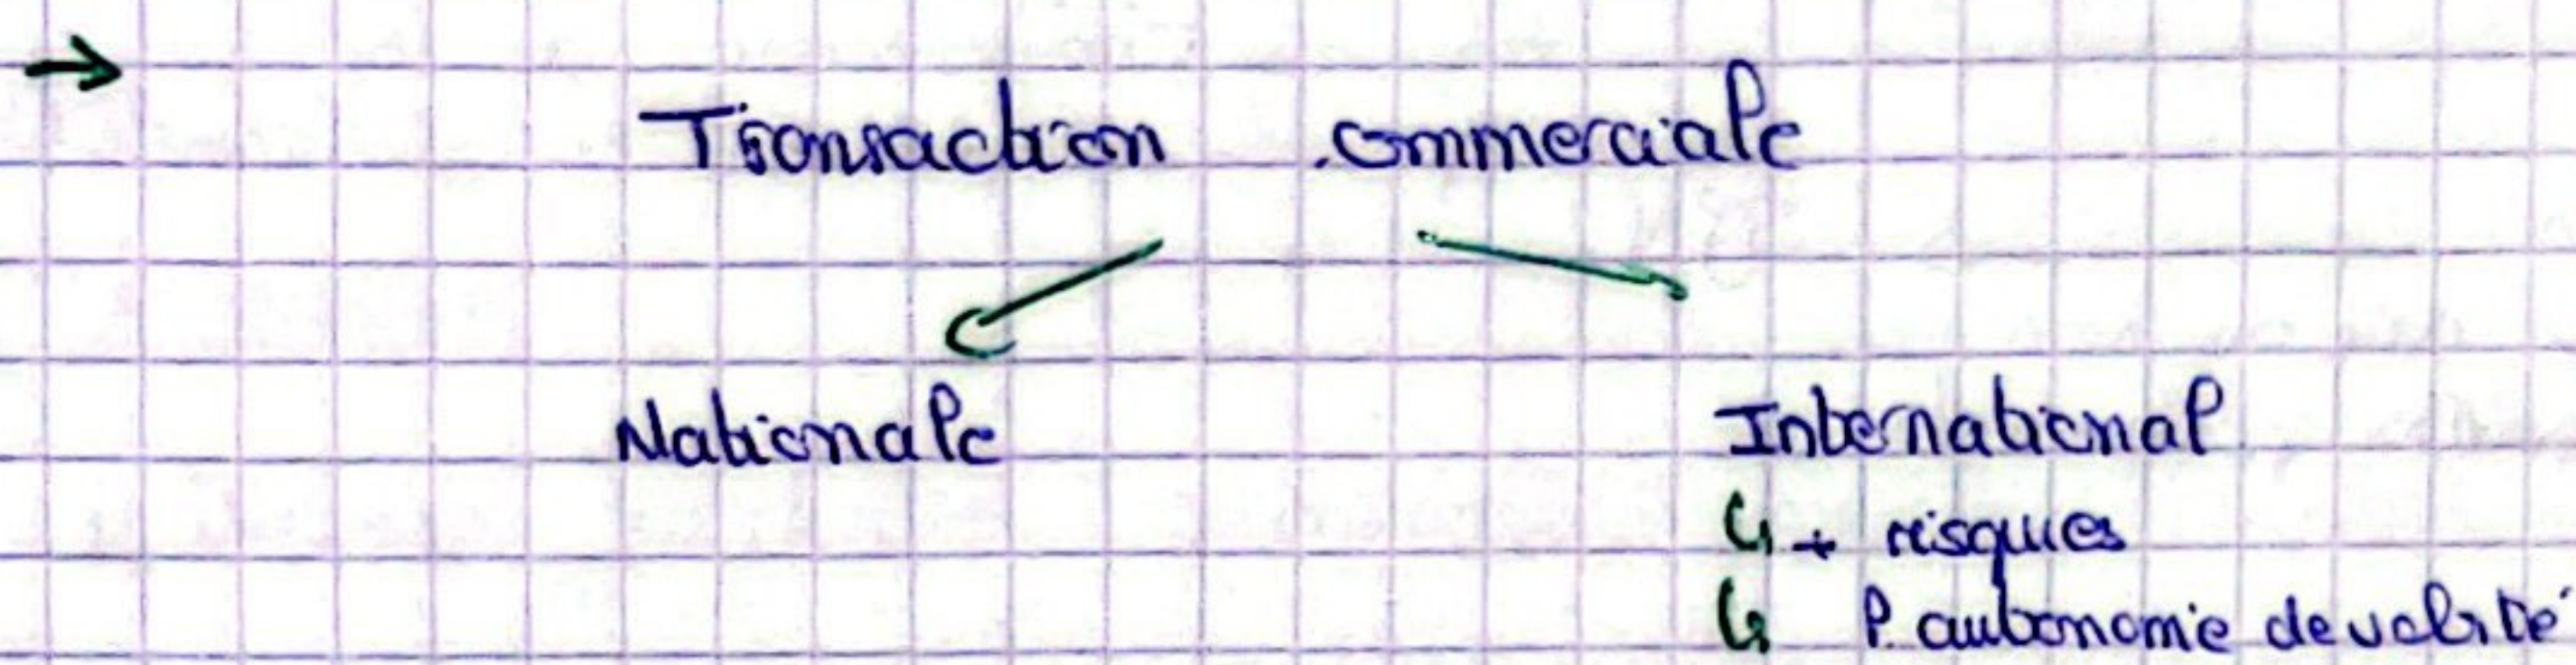 →
Transaction commerciale
Nationale International
↳ + risques
↳ P. autonomie de volonté